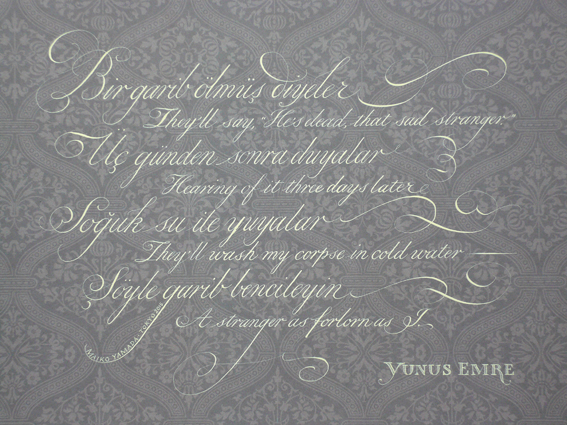 Bir garib ölmüş diyeler
They'll say, "He's dead, that sad stranger"
Üç günden sonra duyalar
Hearing of it three days later
Soğuk su ile yuyalar
They'll wash my corpse in cold water
Söyle garib bencileyin
A stranger as forlorn as I.
MAIKO YAMADA · TOKYO
YUNUS EMRE